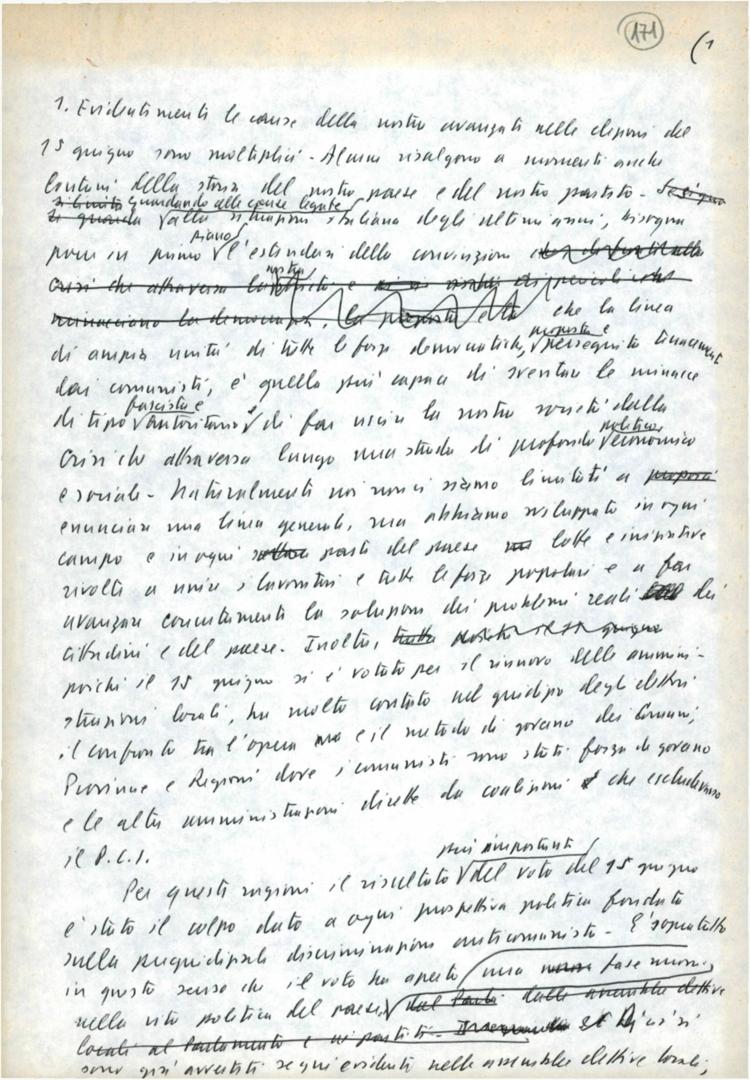 171
(1
1. Evidentemente le cause della nostra avanzata nelle elezioni del
15 giugno sono molteplici - Alcune risalgono a momenti anche
lontani della storia del nostro paese e del nostro partito -
guardando alle cause legate
alla situazione italiana degli ultimi anni, bisogna
piano
porre in primo l'estendersi della convinzione
nostro
crisi che attraversa
minacciano la democrazia, la proposta che la linea
proposta e
di ampia unità di tutte le forze democratiche, perseguita tenacemente
dai comunisti, è quella più capace di sventare le minacce
fascista e
di tipo autoritario e di far uscire la nostra società dalla
politica
crisi che attraversa lungo una strada di profondo economico
e sociale - Naturalmente noi non ci siamo limitati a
enunciare una linea generale, ma abbiamo sviluppato in ogni
campo e in ogni parte del paese lotte e iniziative
rivolte a unire i lavoratori e tutte le forze popolari e a far
avanzare concretamente la soluzione dei problemi reali dei
cittadini e del paese. Inoltre,
poiché il 15 giugno si è votato per il rinnovo delle ammini-
strazioni locali, ha molto contato nel giudizio degli elettori
il confronto tra l'opera e il metodo di governo dei Comuni,
Province e Regioni dove i comunisti sono stati forza di governo
e le altre amministrazioni dirette da coalizioni che escludevano
il P.C.I.
più importante
Per queste ragioni il risultato del voto del 15 giugno
è stato il colpo dato a ogni prospettiva politica fondata
sulla pregiudiziale discriminazione anticomunista - E' soprattutto
in questo senso che il voto ha aperto una fase nuova
nella vita politica del paese, dalle assemblee elettive
locali al Parlamento e ai partiti - Di ciò si
sono già avvertiti segni evidenti nelle assemblee elettive locali,